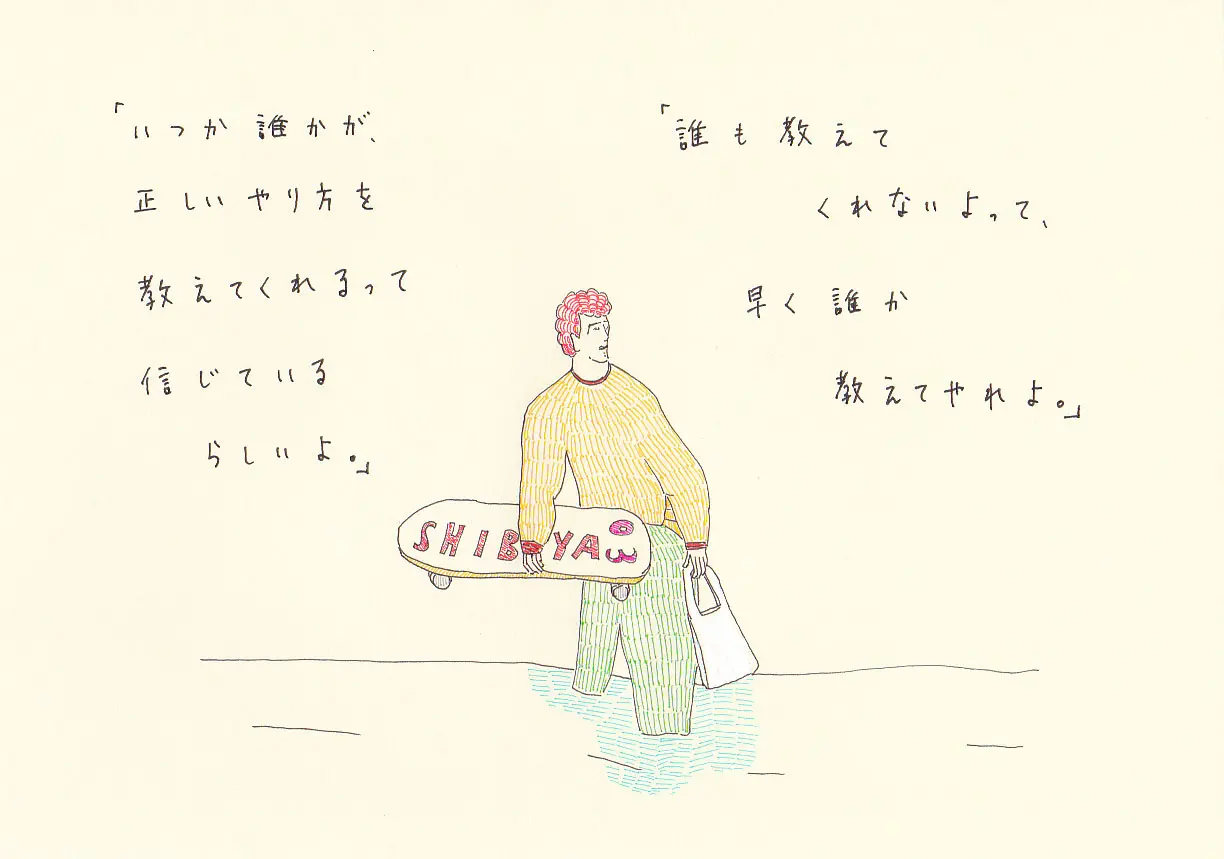 「いつか誰かが、
正しいやり方を
教えてくれるって
信じている
らしいよ。」
「誰も教えて
くれないよって、
早く誰か
教えてやれよ。」
SHIBUYA 03